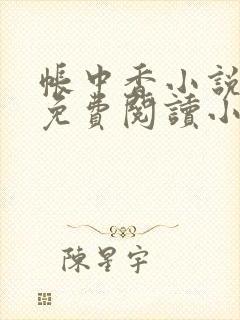 帳中香小說
免費閱讀小
陳星宇